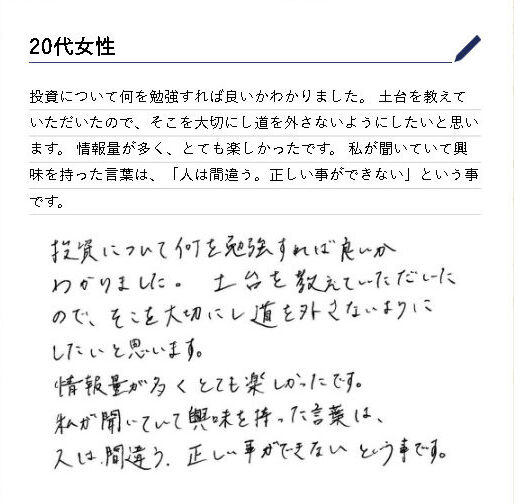 20代女性
投資について何を勉強すれば良いかわかりました。 土台を教えて
いただいたので、そこを大切にし道を外さないようにしたいと思い
ます。 情報量が多く、とても楽しかったです。 私が聞いていて興
味を持った言葉は、「人は間違う。正しい事ができない」という事
です。
投資について何を勉強すれば良いか
わかりました。 土台を教えていただいた
ので、そこを大切にし道を外さないように
したいと思います。
情報量が多くとても楽しかったです。
私が聞いていて興味を持った言葉は、
人は間違う. 正しい事ができない という事です。